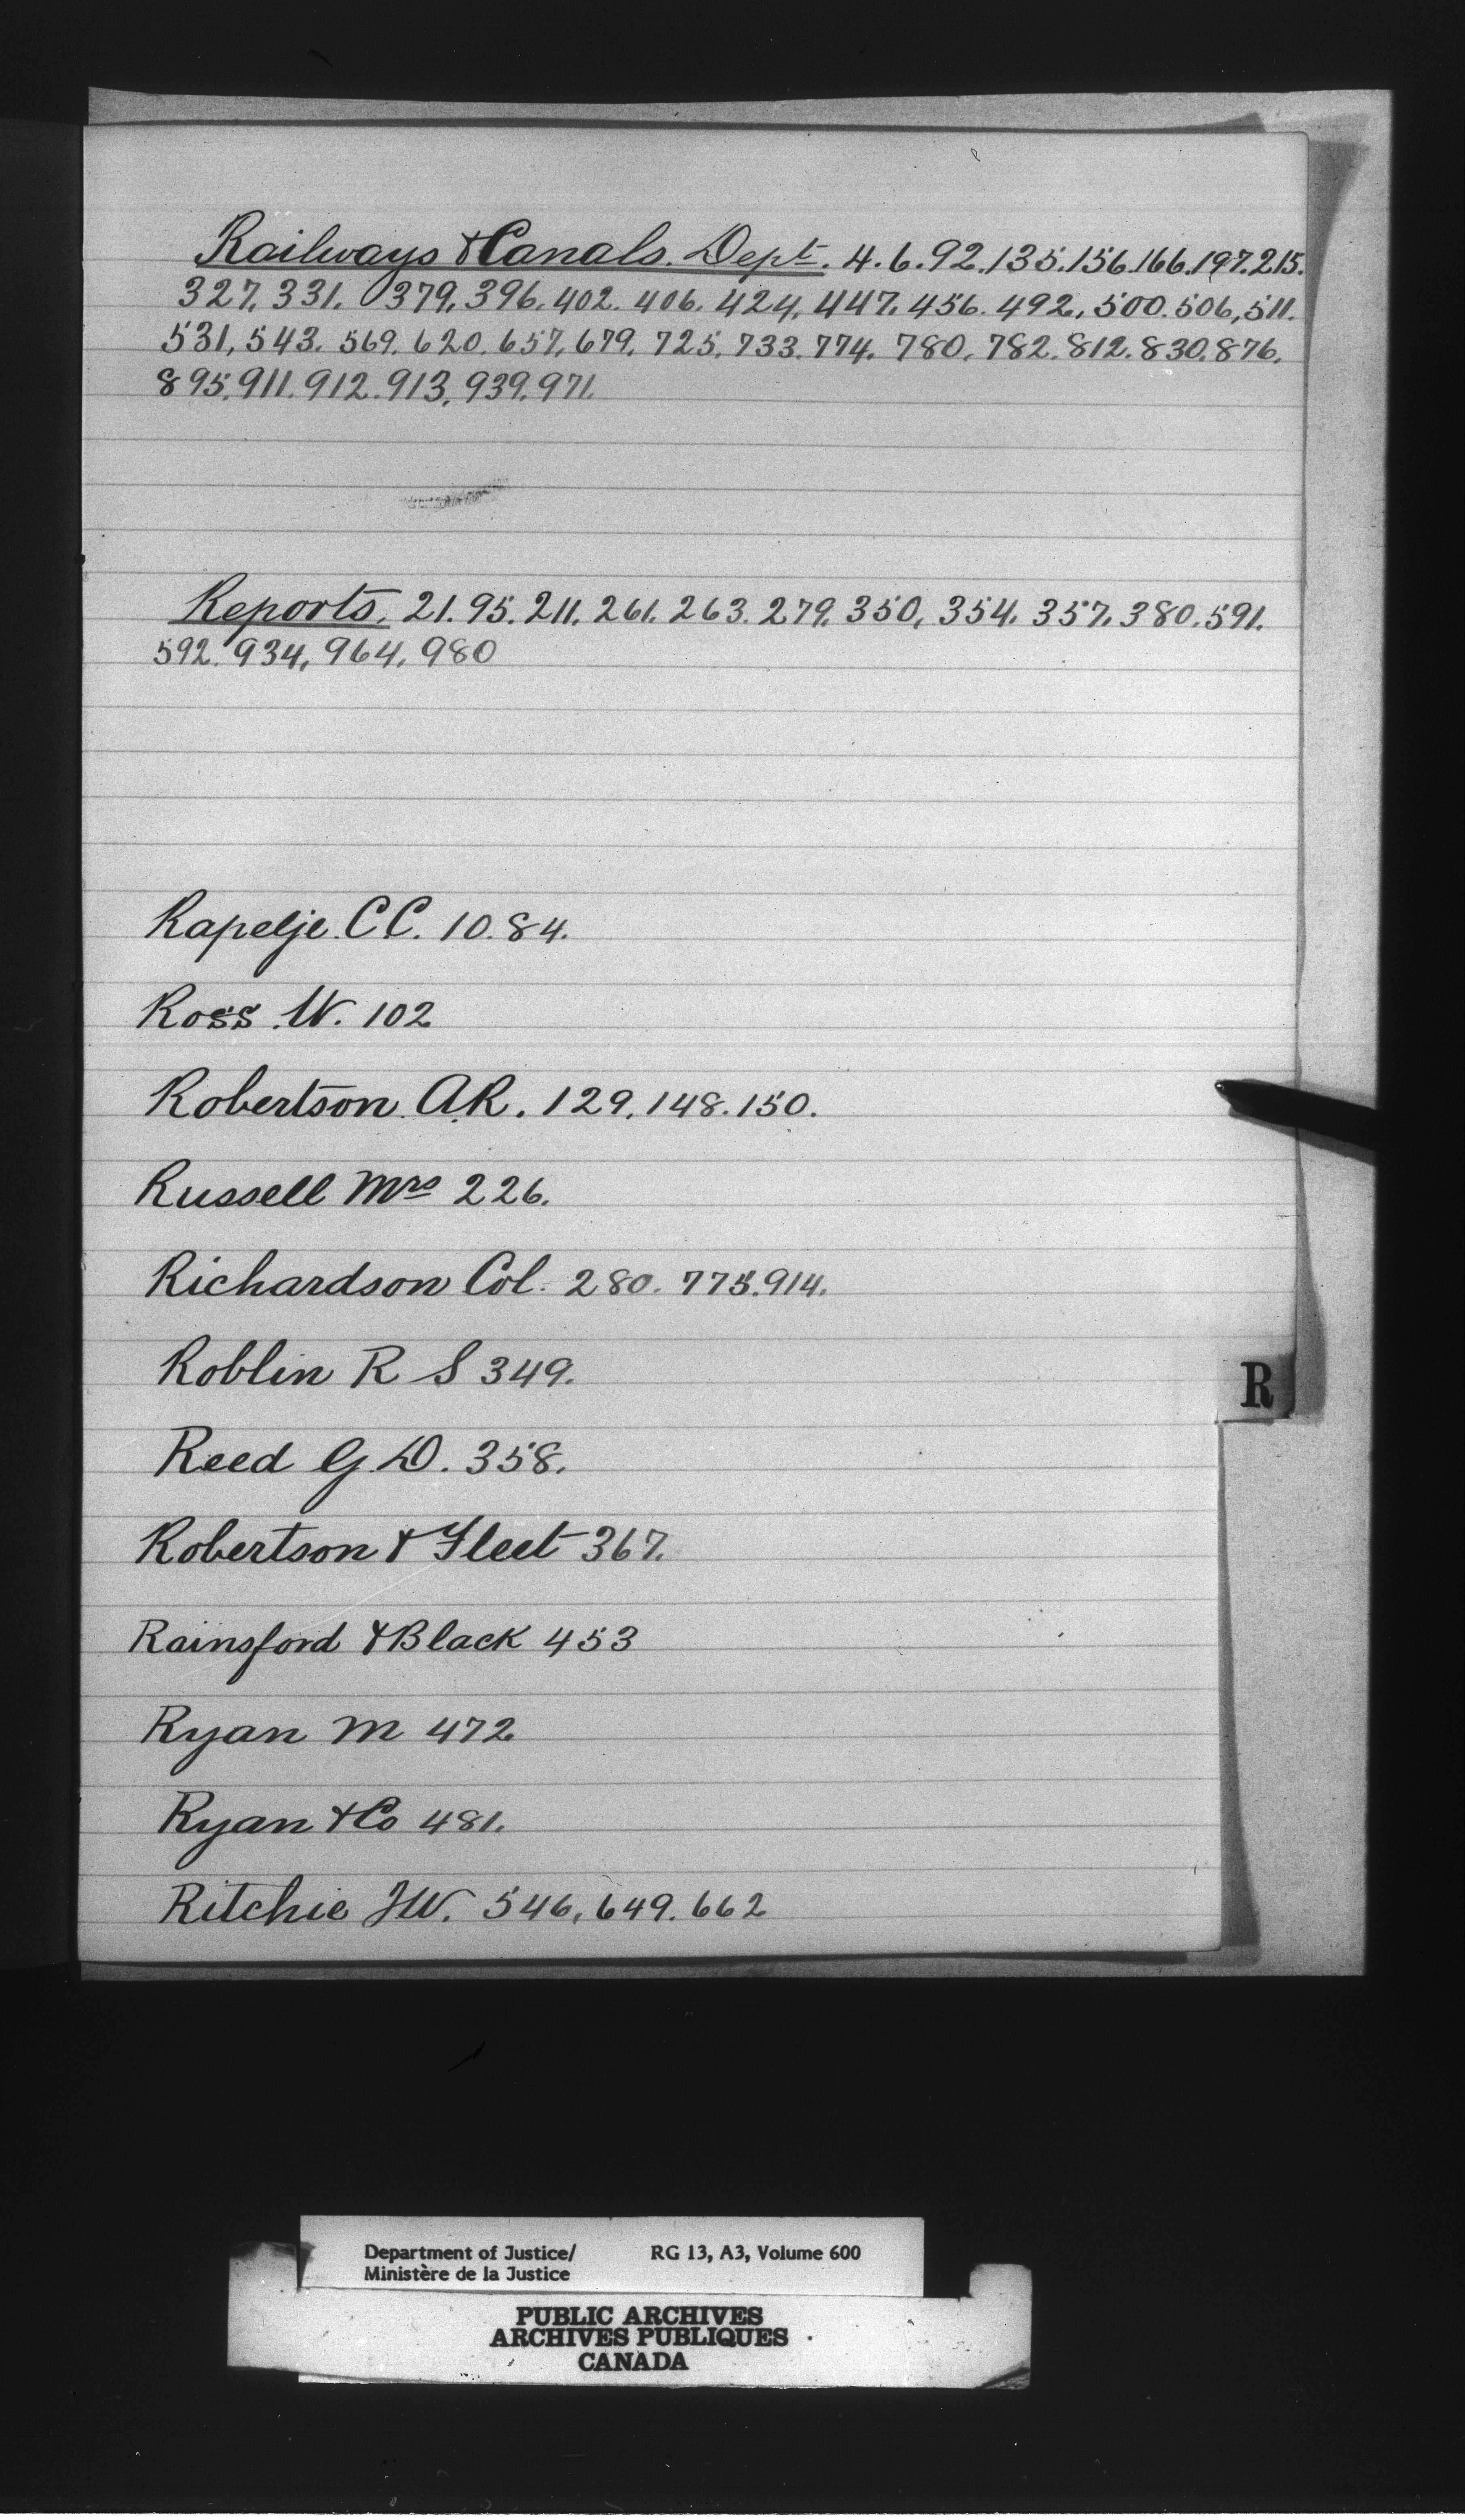 Railways & Canals. Dept. 4. 6. 92. 135. 156. 166. 197. 215.
327. 331. 379. 396. 402. 406. 424. 447. 456. 492. 500. 506, 511.
531, 543. 569. 620. 657. 679. 725. 733. 774. 780. 782. 812. 830. 876.
895. 911. 912. 913. 939. 971.
Reports. 21. 95. 211. 261. 263. 279. 350, 354. 357. 380. 591.
592. 934, 964, 980
Rapelje. C C. 10. 84.
Ross. W. 102
Robertson. A. R. 129. 148. 150.
Russell Mrs 226.
Richardson Col. 280. 775. 914.
Roblin R S 349.
R
Reed G. D. 358.
Robertson & Fleet 367.
Rainsford & Black 453
Ryan M 472
Ryan & Co 481.
Ritchie J W. 546, 649. 662
Department of Justice/ RG 13, A3, Volume 600
Ministère de la Justice
PUBLIC ARCHIVES
ARCHIVES PUBLIQUES
CANADA